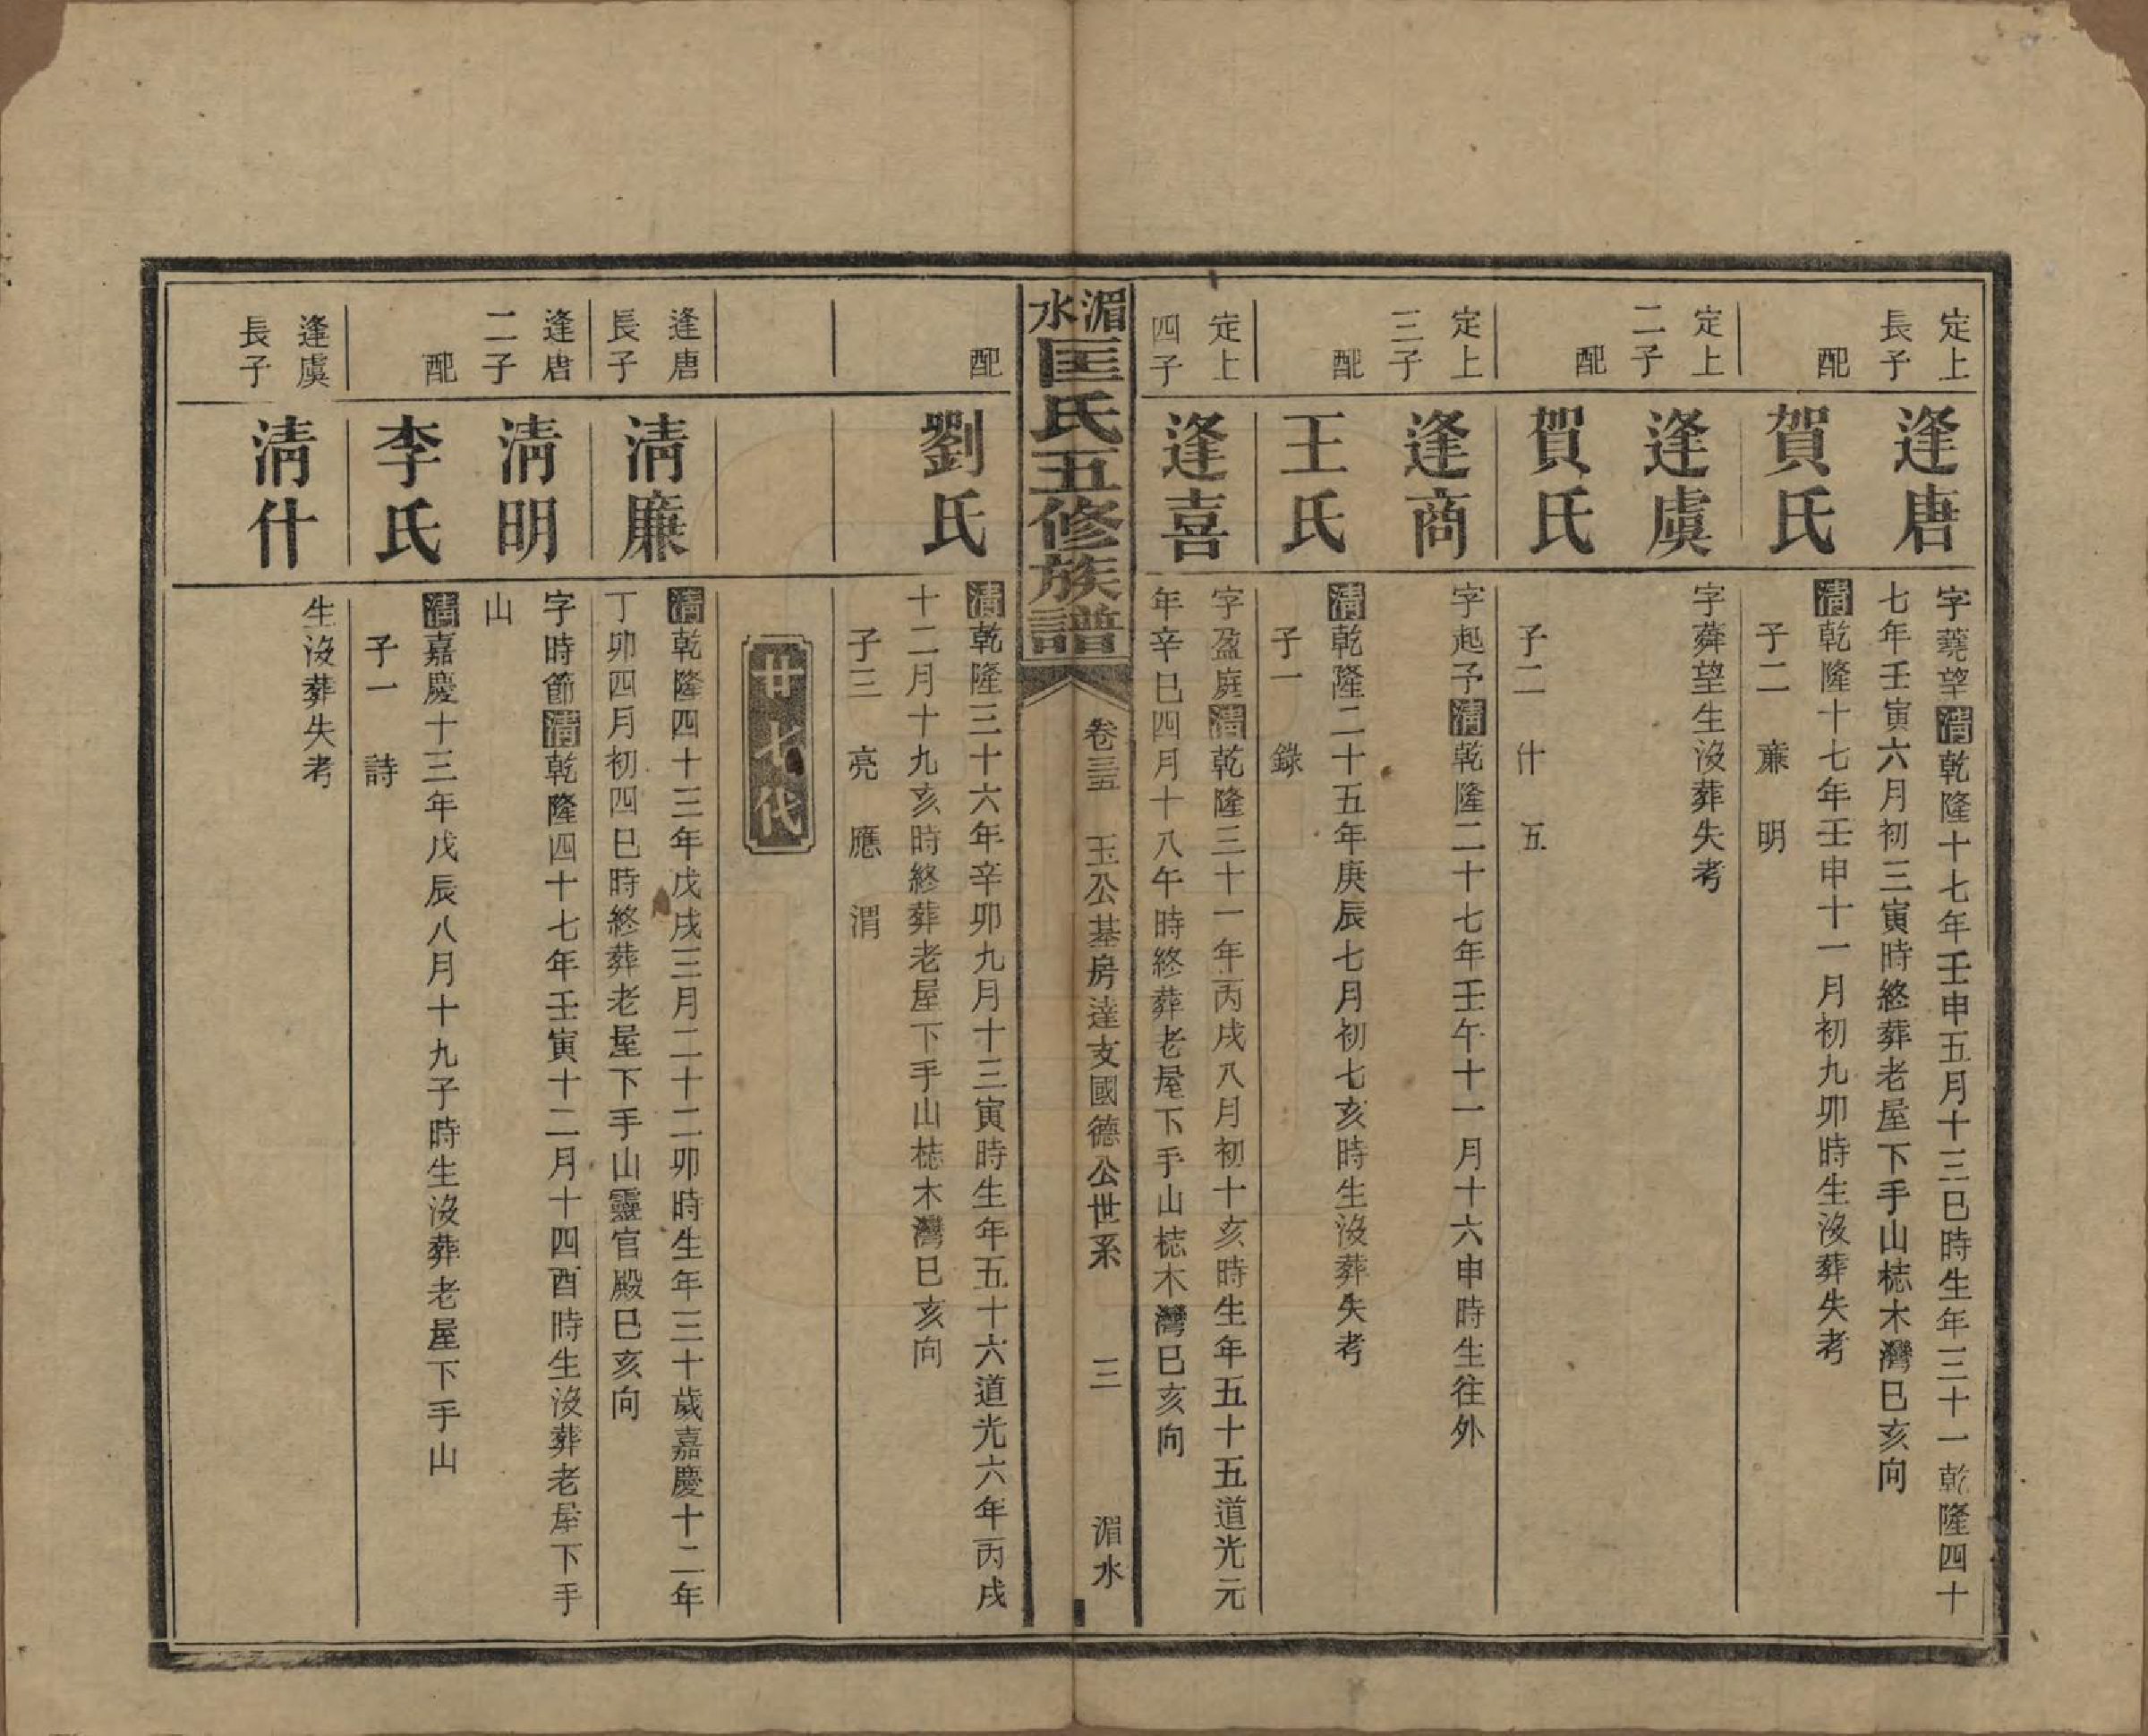 定上
長子
逢唐
字蕘望清乾隆十七年壬申五月十三巳時生年三十一乾隆四十
七年壬寅六月初三寅時終葬老屋下手山梽木灣巳亥向
配
賀氏
清乾隆十七年壬申十一月初九卯時生沒葬失考
子二 亷 明
定上
二子
逢虞
字蕣望生沒葬失考
配
賀氏
子二 什 五
定上
三子
逢商
字起予清乾隆二十七年壬午十一月十六申時生往外
配
王氏
清乾隆二十五年庚辰七月初七亥時生沒葬失考
子一 錄
定上
四子
逢喜
字盈庭清乾隆三十一年丙戌八月初十亥時生年五十五道光元
年辛巳四月十八午時終葬老屋下手山梽木灣巳亥向
湄水匡氏五修族譜
卷三五 玉公基房達支國德公世系 三 湄水
配
劉氏
清乾隆三十六年辛卯九月十三寅時生年五十六道光六年丙戌
十二月十九亥時終葬老屋下手山梽木灣巳亥向
子三 亮 應 渭
廿七代
逢唐
長子
清廉
清乾隆四十三年戊戌三月二十二卯時生年三十歲嘉慶十二年
丁卯四月初四巳時終葬老屋下手山靈官殿巳亥向
逢唐
二子
清明
字時節清乾隆四十七年壬寅十二月十四酉時生沒葬老屋下手
山
配
李氏
清嘉慶十三年戊辰八月十九子時生沒葬老屋下手山
子一 詩
逢虞
長子
清什
生沒葬失考